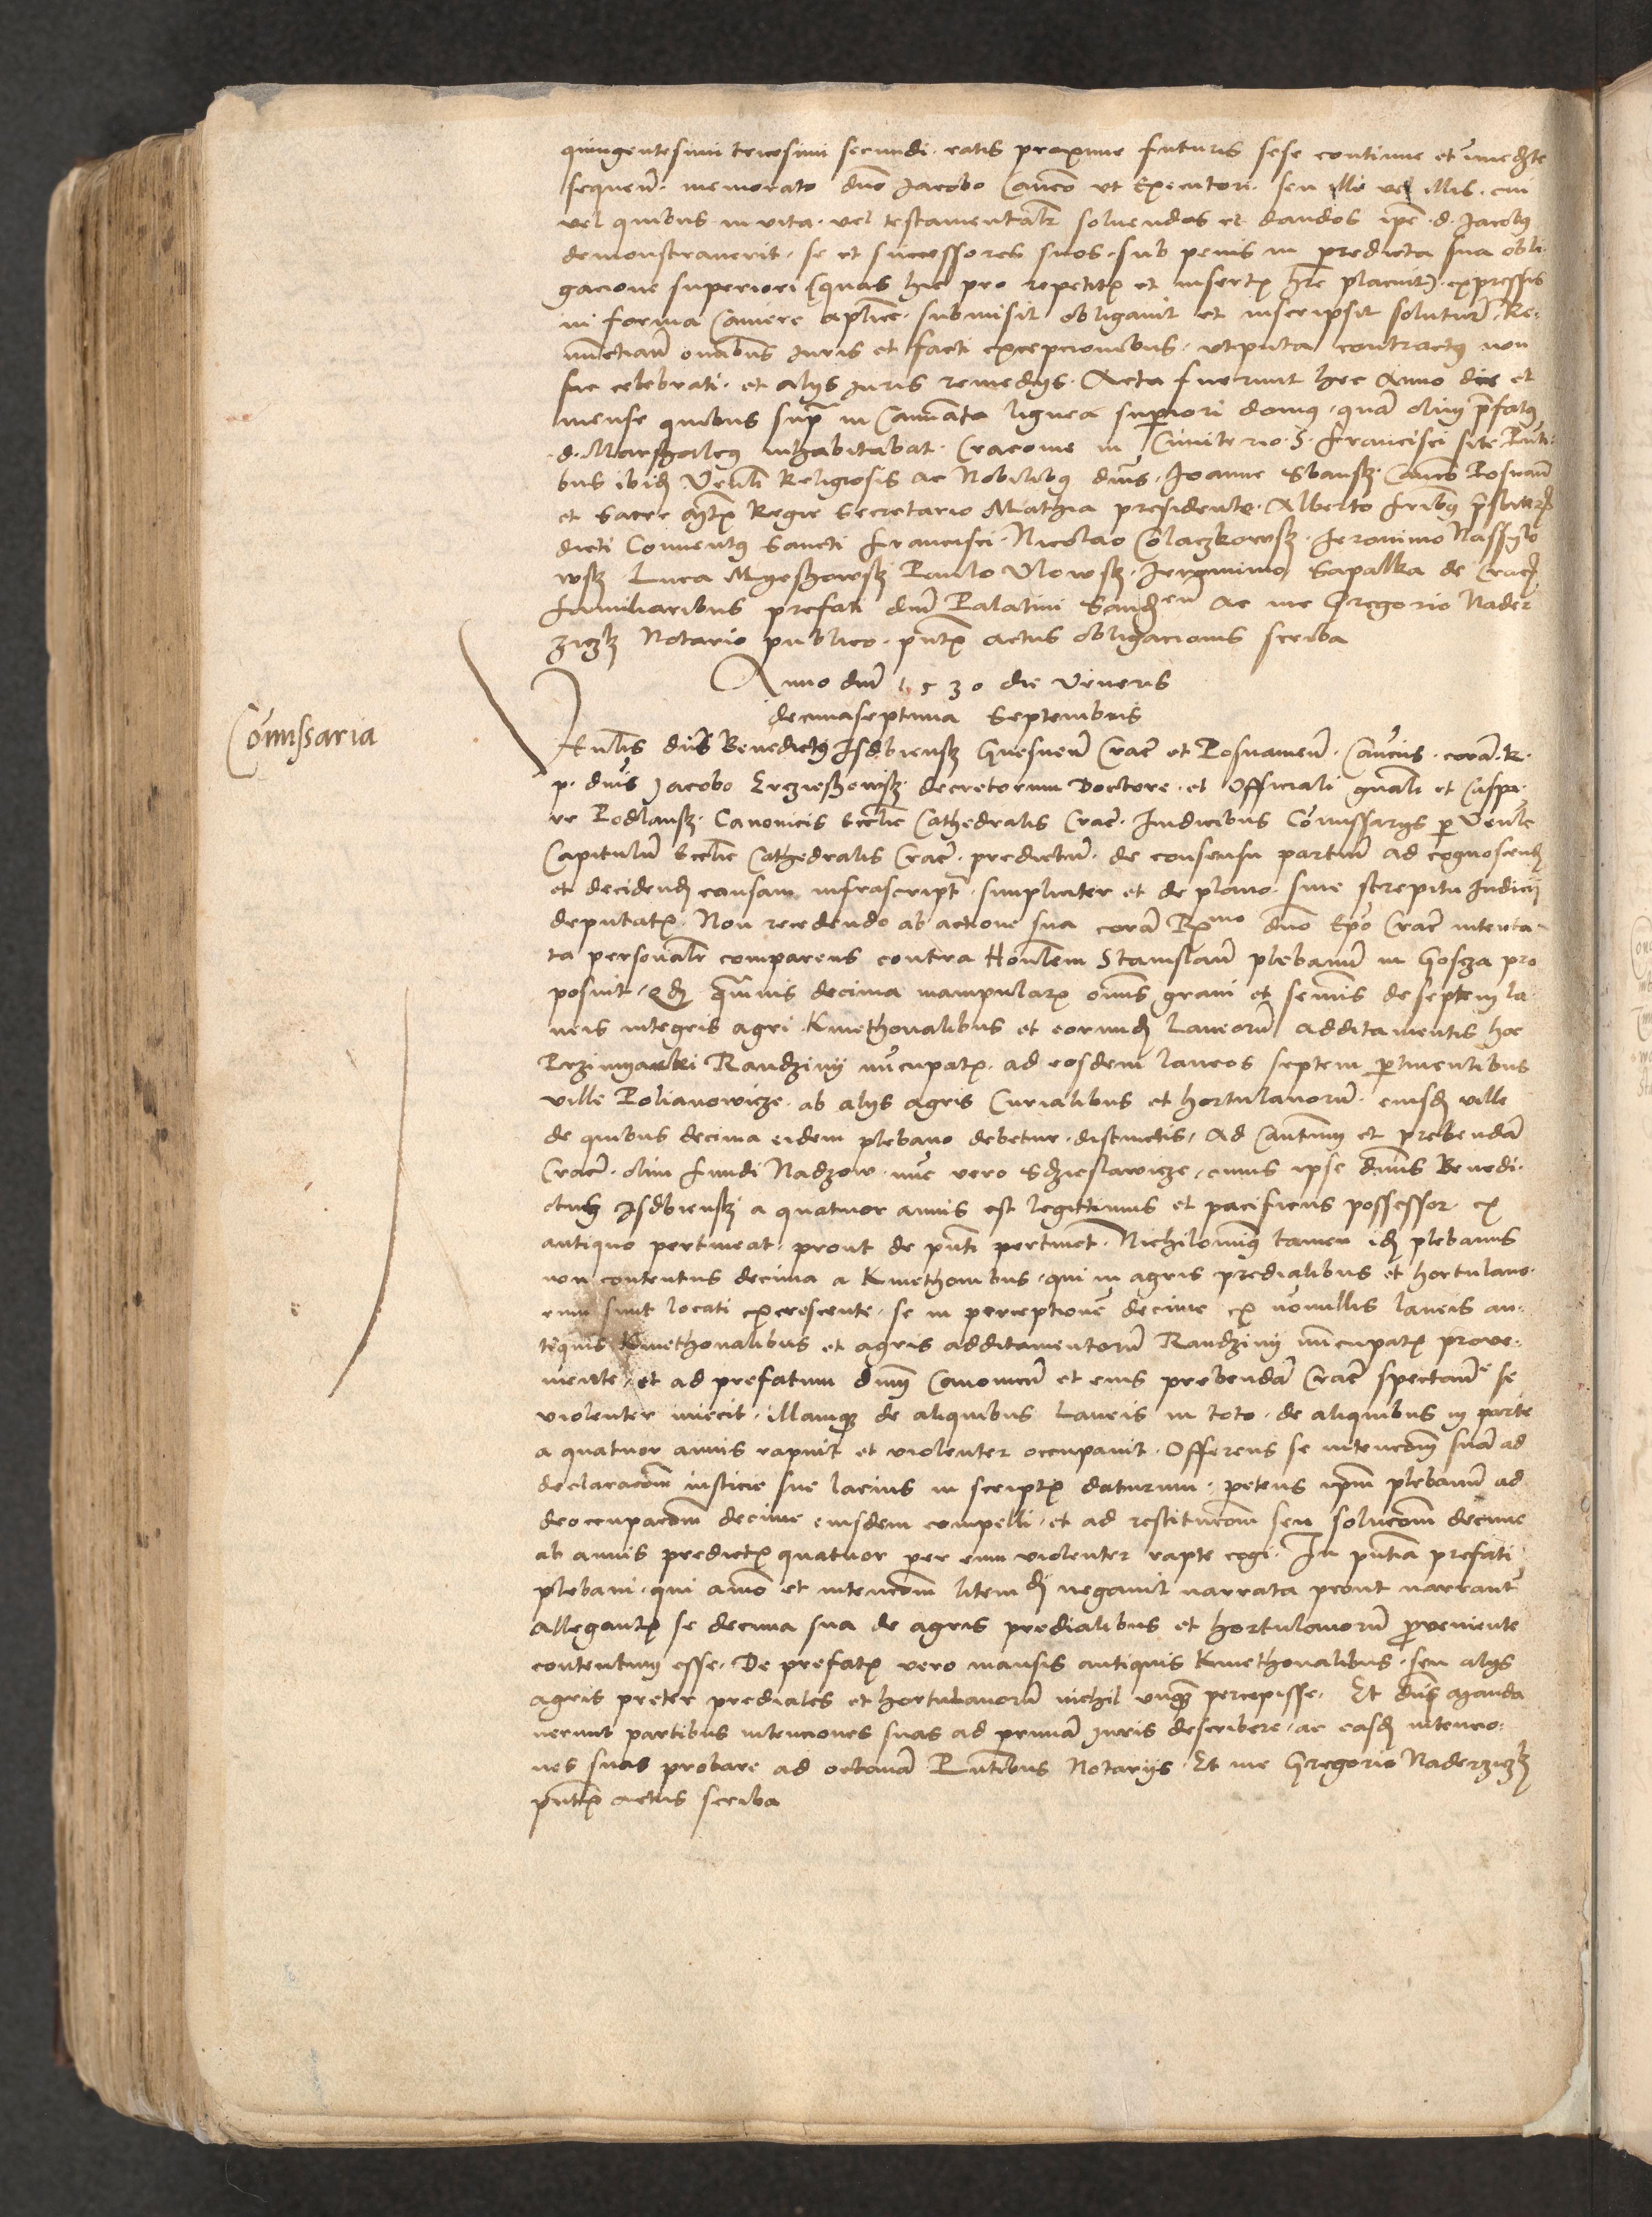 quingentesimi tricesimi secundi ratis proxime futuris sese continue et imediate
sequen̄. memorato dno Jacobo Canco ut Executori. seu illi vel illis. cui
vel quibus in vita. vel testamentalr soluendos et dandos ipē. d. Jacobus
demonstrauerit. se et successores suos. sub penis in predicta sua obli
gacione superiori (quas hic pro repetitis et insertis hr̄e placuit) expressis
in forma Camere aplice. submisit obligauit et inscripsit soluturū. Re
nūctiauit omībus Juris et facti excepcionibus. utputa contractus non
sic celebrati. et alijs Juris remedijs. Acta fuerunt hec Anno die et
mense quibus supra in Camīata lignea superiori domus, quā olim p̄fatus
d. Marschalcus inhabitabat. Cracouie in Cimiterio. S. Francisci site Pnti
bus ibidē Venlī Religiosis ac Nobilibus dnis. Joanne Sbansky Canco Posnanī
et Sacre Mtis Regie Secretario Mathia presidente. Alberto fribus p̄sbiteris
dicti Conuentus Sancti Francisci. Nicolao Colaczkowsky. Jeronimo Nassylo
wsky Luca Myeszkowsky Paulo Ulowsky. Jeronimo Sapalka de Craco
familiaribus prefati dnī Palatini Sandien̄ ac me Gregorio Nader
ziczky Notario publico. pntis actus obligacionis scriba
Anno dnī 1530 die Veneris
decimaseptima Septembris
Comissaria
Venlis dns Benedictus Isdbiensky Gnesnen̄ Crac̄ et Posnanien̄. Cancus. corā. R.
p. dnis Jacobo Erzieszowsky. decretorum Doctore. et Officiali gnali et Caspa
re Podlansky. Canonicis Ecclie Cathedralis Crac̄. Iudicibus Comissarijs p Venle
Capitulū Ecclie Cathedralis Crac̄. predictum. de consensu partiū ad cognoscend
et decidend causam infrascript̄. simpliciter et de plano. sine strepitu Iudicij
deputatis. Non recedendo ab actione sua corā Rmo dno Epo Crac̄ intenta
ta personalr comparens contra Honlem Stanislaū plebanū in Goscza pro
posuit, Qd quāuis decima manipularis omīs grani et seminis de septem la
neis integris agri. Kmethonalibus et eorund Laneorū additamentis hoc
Przimyarki Randziny nūcupatis. ad eosdem laneos septem ptinentibus
ville Polianowicze. ab alijs agris Curialibus et hortulanorū. eiusd ville
de quibus decima eidem plebano debetur. distinctis, Ad Canonm et prebendā
Crac̄. olim fundi Nadzow. nūc vero Sdzieslawicze, cuius ipse dnus Benedi
ctus Isdbiensky a quatuor annis est legittimus et pacificus possessor. ex
antiquo pertineat. prout de pnti pertinet. Nichilominus tamen idē plebanus
non contentus decima a Kmethonibus. qui in agris predialibus et hortulano
rum sunt locati excrescente. se in perceptionē decime ex nōnullis laneis an
tiquis Kmethonalibus et agris additamentorū Randziny nūcupatis proue
niente, et ad prefatum dnm Canonicū et eius prebendā Crac̄ spectan̄te se
violenter iniecit. illamque de aliquibus Laneis in toto. de aliquibus in parte
a quatuor annis rapuit et violenter occupauit. Offerens se intencōm suā ad
declaracōm iusticie sue lacius in scriptis daturum. petens ipm plebanū ad
deoccupacōm decime eiusdem compelli. et ad restitucōm seu solucōm decime
ab annis predictis quatuor per eum violenter rapte cogi. In pntia prefati
plebani. qui animo et intencōm litem dī negauit narrata prout narrant̄
allegantis se decima sua de agris predialibus et hortulanorū proueniente
contentum esse. De prefatis vero mansis antiquis Kmethonalibus. seu alijs
agris preter prediales et hortulanorū nichil unquā percepisse. Et dnis manda
uerunt partibus intenciones suas ad primā Juris describere. ac easd intencio
nes suas probare ad octauā Pntibus Notarijs. Et me Gregorio Naderziczky
pntis actus scriba